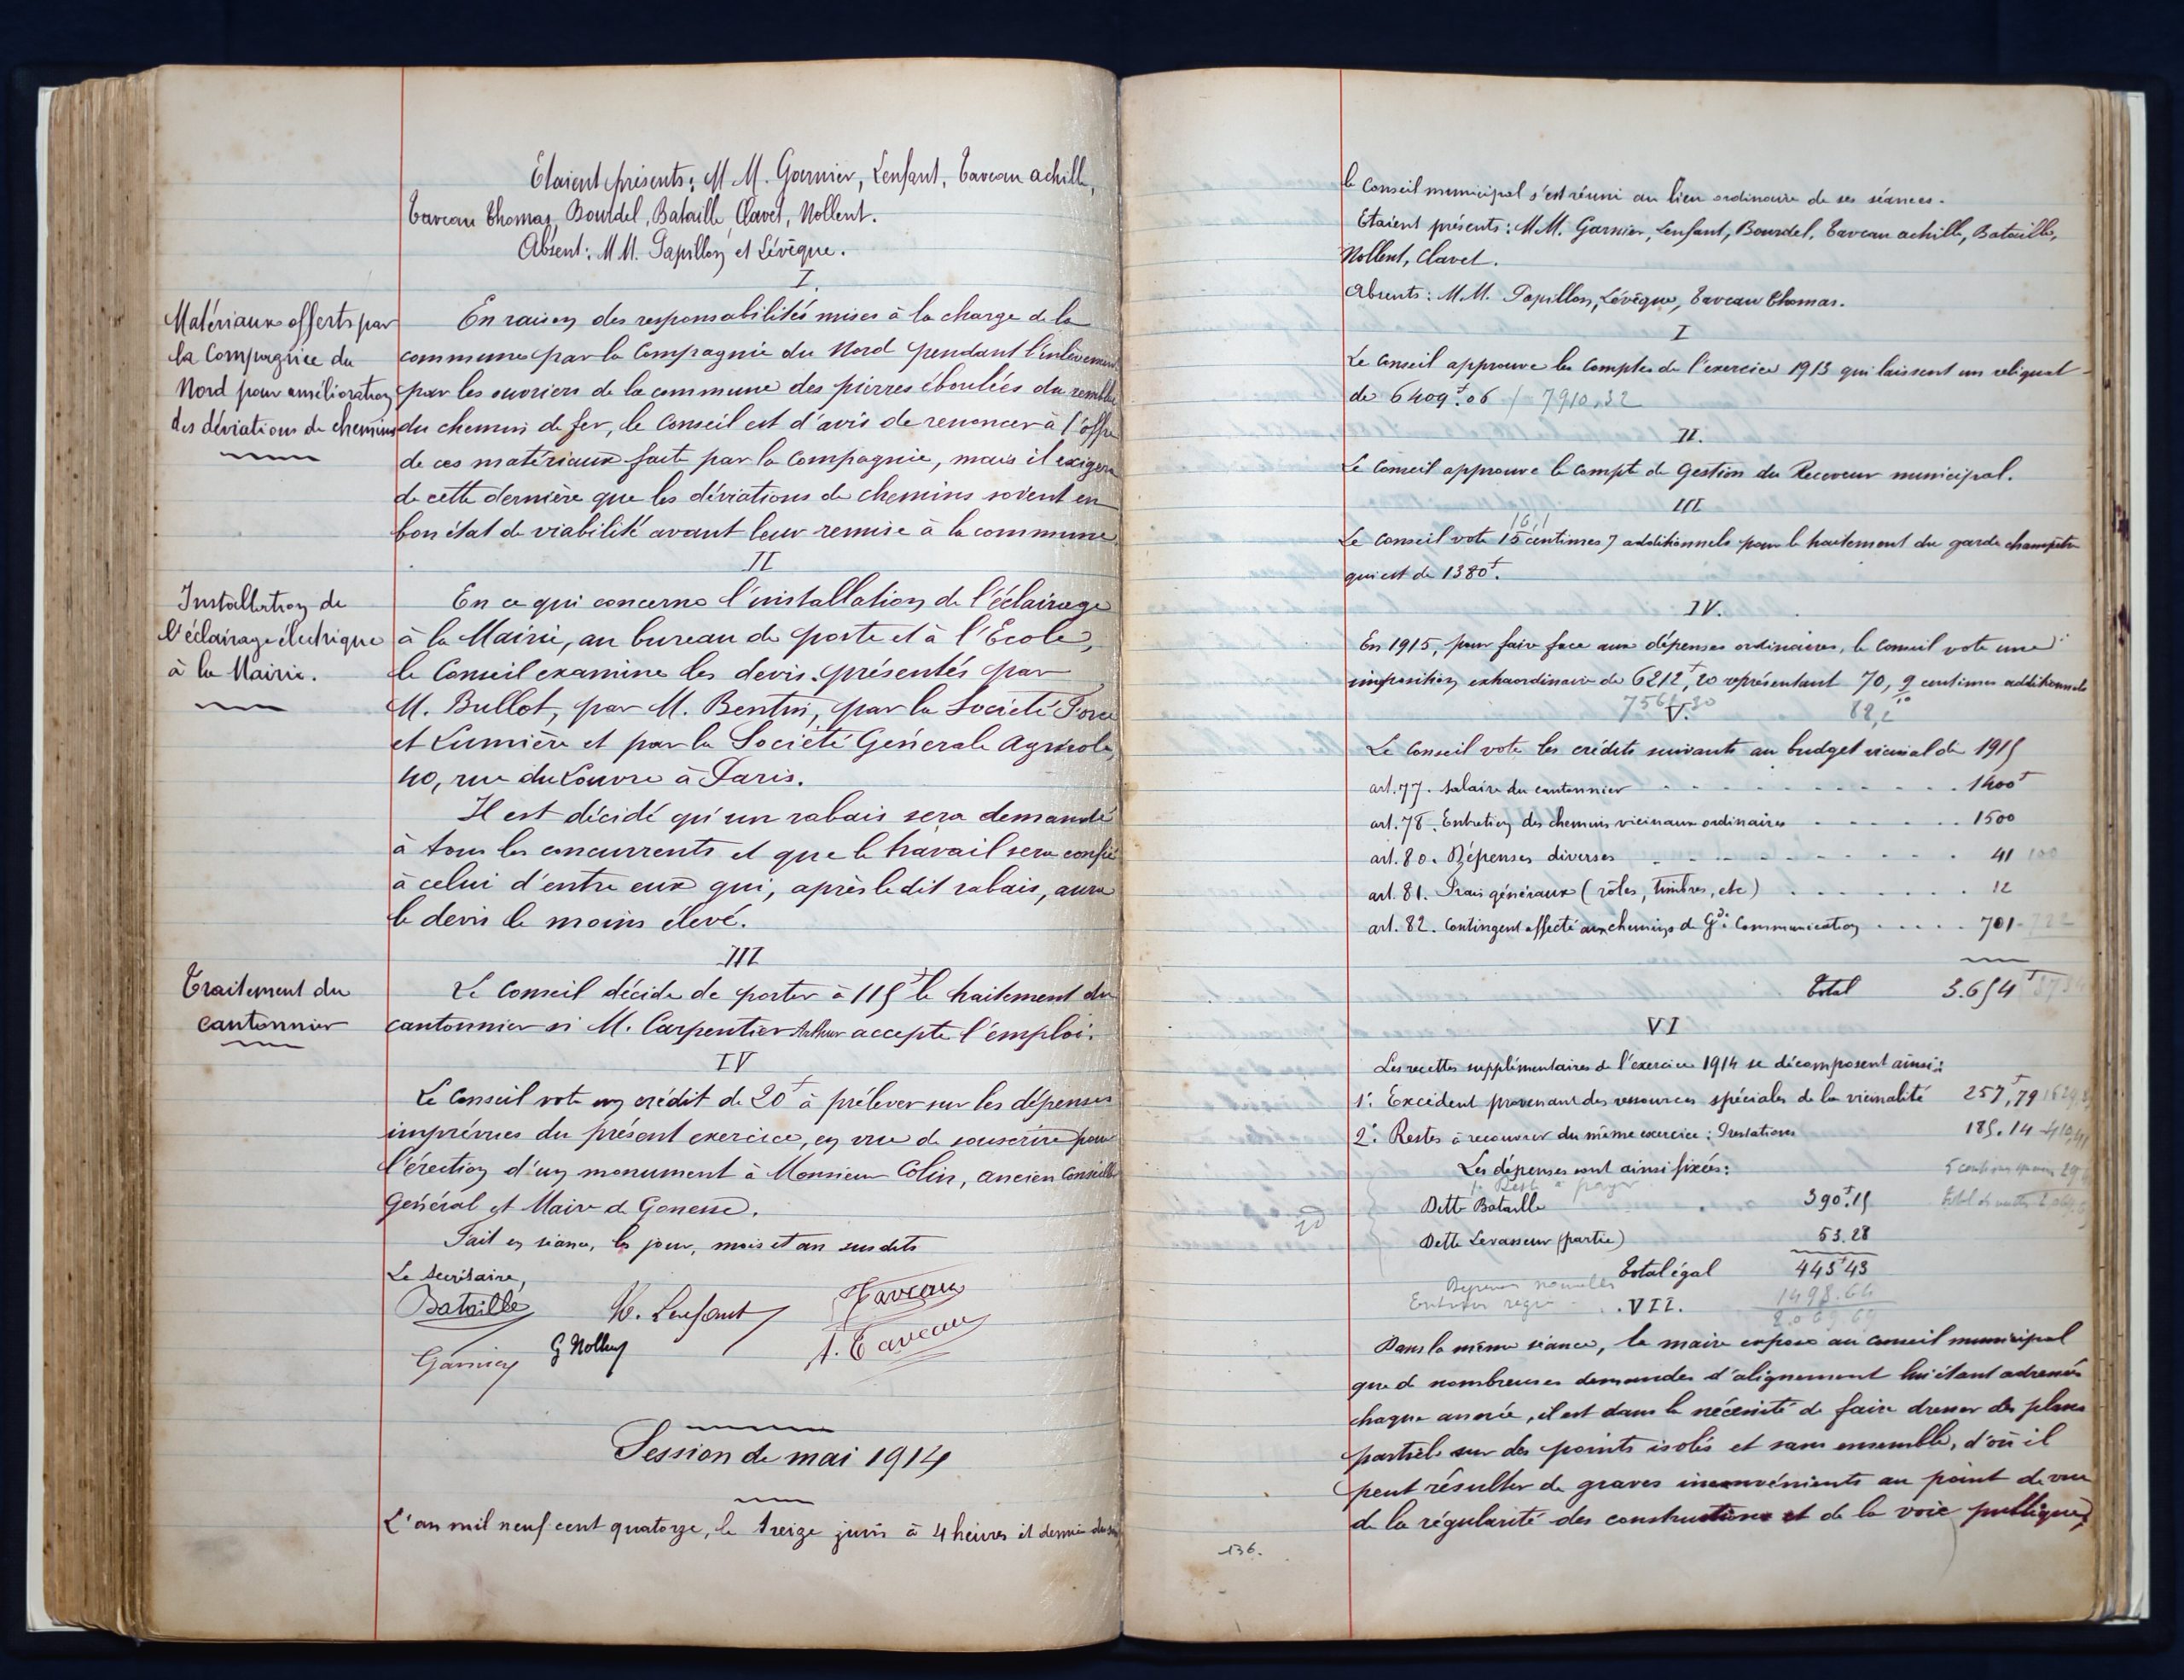 Etaient présents: M M. Garnier, Lenfant, Taveau achille,
Taveau Thomas, Bourdel, Bataille, Clavel, Nollent.
Absent: M M. Papillon et Lévêque.
I.
Matériaux offerts par
la Compagnie du
Nord pour amélioration
des déviations de chemins
En raison des responsabilités mises à la charge de la
commune par la Compagnie du Nord pendant l'enlèvement
par les ouvriers de la commune des pierres éboulées du remblai
du chemin de fer, le Conseil est d'avis de renoncer à l'offre
de ces matériaux faite par la Compagnie, mais il exigera
de cette dernière que les déviations de chemins soient en
bon état de viabilité avant leur remise à la commune.
II
Installation de
l'éclairage électrique
à la Mairie.
En ce qui concerne l'installation de l'éclairage
à la Mairie, au bureau de poste et à l'Ecole,
le Conseil examine les devis présentés par
M. Bullot, par M. Bentin, par la Société Force
et Lumière et par la Société Générale Agricole,
40, rue du Louvre à Paris.
Il est décidé qu'un rabais sera demandé
à tous les concurrents et que le travail sera confié
à celui d'entre eux qui, après le dit rabais, aura
le devis le moins élevé.
III
Traitement du
cantonnier
Le Conseil décide de porter à 115f le traitement du
cantonnier si M. Carpentier Arthur accepte l'emploi.
IV
Le Conseil vote un crédit de 20f à prélever sur les dépenses
imprévues du présent exercice, en vue de souscrire pour
l'érection d'un monument à Monsieur Colin, ancien Conseiller
Général et Maire de Gonesse.
Fait en séance, les jour, mois et an susdits
Le Secrétaire,
Bataille
H. Lenfant
Taveau
Garnier
G Nollent
A. Taveau
Session de mai 1914
L'an mil neuf cent quatorze, le treize juin à 4 heures et demie du soir
le Conseil municipal s'est réuni au lieu ordinaire de ses séances.
Etaient présents: M.M. Garnier, Lenfant, Bourdel, Taveau achille, Bataille,
Nollent, Clavel.
Absents: M.M. Papillon, Lévêque, Taveau Thomas.
I
Le Conseil approuve les comptes de l'exercice 1913 qui laissent un reliquat
de 6409f.06 / 7910,32
II.
Le Conseil approuve le compt de Gestion du Receveur municipal.
III
16,1
Le Conseil vote 15 centimes 7 additionnels pour le traitement du garde champêtre
qui est de 1380f.
IV.
En 1915, pour faire face aux dépenses ordinaires, le Conseil vote une
imposition extraordinaire de 6212f,20 représentant 70,9 centimes additionnels
V.
Le Conseil vote les crédits suivants au budget vicinal de 1915
art. 77. Salaire du cantonnier 1400f
art. 78. Entretien des chemins vicinaux ordinaires 1500
art. 80. Dépenses diverses 41 100
art. 81. Frais généraux (rôles, timbres, etc) 12
art. 82. Contingent affecté aux chemins de Gde Communication 701 722
Total 3.654f
VI
Les recettes supplémentaires de l'exercice 1914 se décomposent ainsi:
1° Excédent provenant des ressources spéciales de la vicinalité 257f,79
2° Restes à recouvrer du même exercice: Prestations 185.14
Les dépenses sont ainsi fixées:
1° Reste à payer
Dette Bataille 390f.15
Dette Levasseur (partie) 53.28
Total égal 443f43
Dépenses nouvelles
1498.64
VII.
Dans la même séance, le maire expose au conseil municipal
que de nombreuses demandes d'alignement lui étant adressées
chaque année, il est dans la nécessité de faire dresser des plans
partiels sur des points isolés et sans ensemble, d'où il
peut résulter de graves inconvénients au point de vue
de la régularité des constructions et de la voie publique,
136.